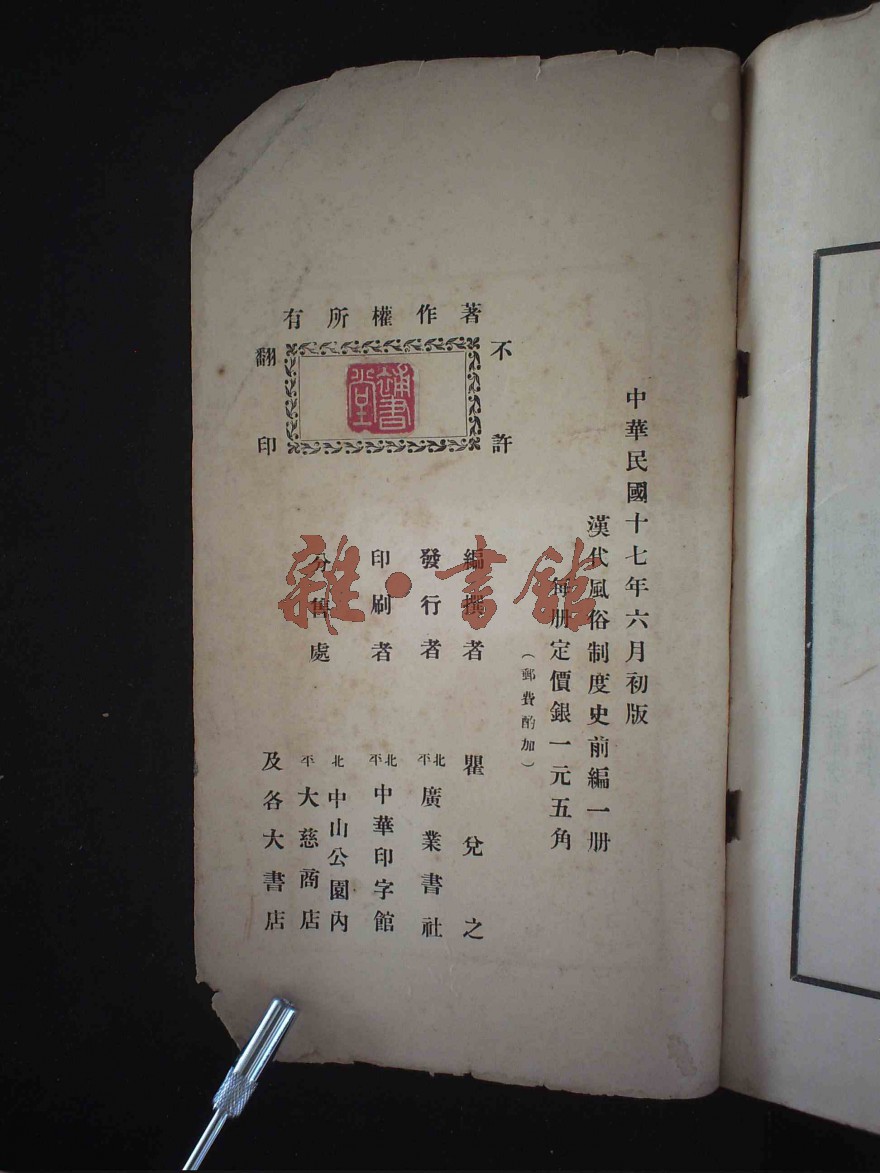 中華民國十七年六月初版
漢代風俗制度史前編一册
每册定價銀一元五角
（郵費酌加）
著作權所有
不許
翻印
補書堂
編撰者 瞿兌之
發行者 北平廣業書社
印刷者 北平中華印字館
分售處 北平中山公園內
大慈商店
及各大書店
雜·書館